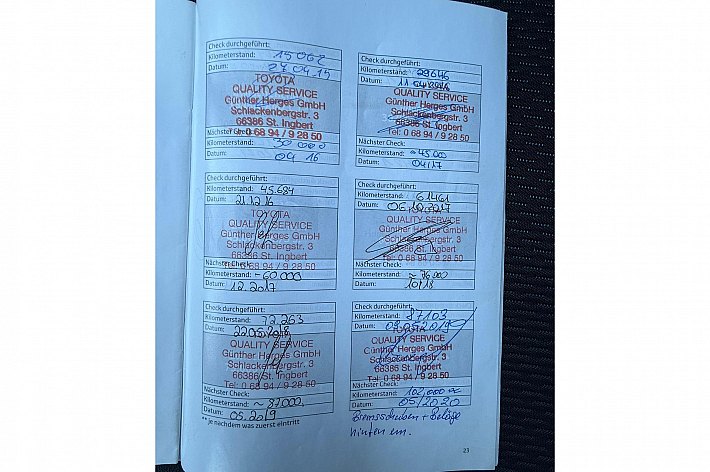 Check durchgeführt:
Kilometerstand: 15 062
Datum: 24.04.15
TOYOTA
QUALITY SERVICE
Günther Herges GmbH
Schlackenbergstr. 3
66386 St. Ingbert
Tel: 0 68 94 / 9 28 50
Nächster Check:
Kilometerstand: 30 000
Datum: 04 16
Check durchgeführt:
Kilometerstand: 29646
Datum: 11.04.2016
TOYOTA
QUALITY SERVICE
Günther Herges GmbH
Schlackenbergstr. 3
66386 St. Ingbert
Tel: 0 68 94 / 9 28 50
Nächster Check:
Kilometerstand: ~45 000
Datum: 04/17
Check durchgeführt:
Kilometerstand: 45.684
Datum: 21.12.16
TOYOTA
QUALITY SERVICE
Günther Herges GmbH
Schlackenbergstr. 3
66386 St. Ingbert
Tel: 0 68 94 / 9 28 50
Nächster Check:
Kilometerstand: ~60.000
Datum: 12.2017
Check durchgeführt:
Kilometerstand: 61461
Datum: 06.10.2017
TOYOTA
QUALITY SERVICE
Günther Herges GmbH
Schlackenbergstr. 3
66386 St. Ingbert
Tel: 0 68 94 / 9 28 50
Nächster Check:
Kilometerstand: ~ 76 000
Datum: 10/18
Check durchgeführt:
Kilometerstand: 72.263
Datum: 22.05.2018
TOYOTA
QUALITY SERVICE
Günther Herges GmbH
Schlackenbergstr. 3
66386 St. Ingbert
Tel: 0 68 94 / 9 28 50
Nächster Check:
Kilometerstand: ~ 87000
Datum: 05.2019
** Je nachdem was zuerst eintritt
Check durchgeführt:
Kilometerstand: 87103
Datum:
TOYOTA
QUALITY SERVICE
Günther Herges GmbH
Schlackenbergstr. 3
66386 St. Ingbert
Tel: 0 68 94 / 9 28 50
Nächster Check:
Kilometerstand: 102,000
Datum: 05/2020
Bremsscheiben + Beläge
hinten ern.
23